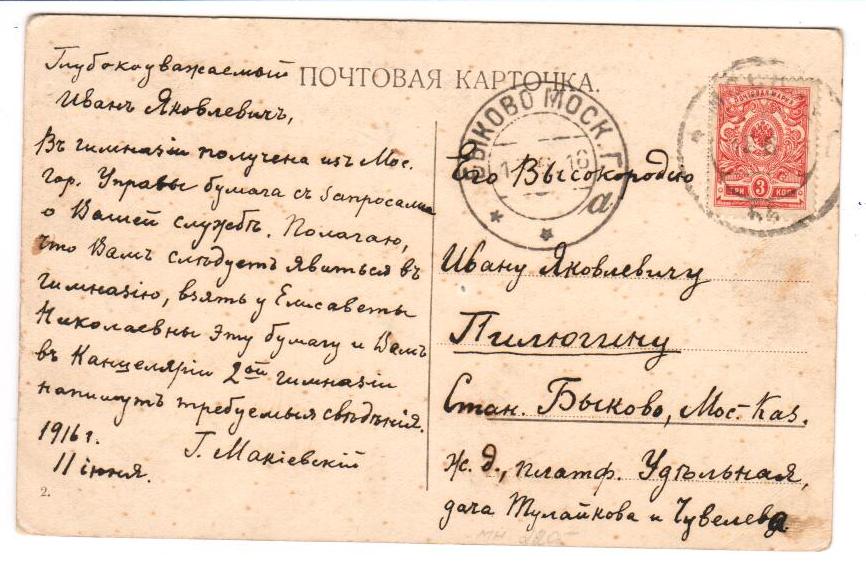 ПОЧТОВАЯ КАРТОЧКА.
Глубокоуважаемый
Иванъ Яковлевичъ,
Въ гимназіи получена изъ Мос.
гор. Управы бумага съ запросами
о Вашей службѣ. Полагаю,
что Вамъ слѣдуетъ явиться въ
гимназію, взять у Елисаветы
Николаевны эту бумагу и Вамъ
въ Канцеляріи 2ой гимназіи
напишутъ требуемыя свѣдѣнія.
1916 г.
11 іюня.
Г. Макіевскій
2.
БЫКОВО МОСК. Г.
16
а
ПОЧТОВАЯ МАРКА
ТРИ 3 КОП
Его Высокородію
Ивану Яковлевичу
Пилюгину
Стан. Быково, Мос-Каз.
Ж. д., платф. Удѣльная,
дача Тулайкова и Чувелева